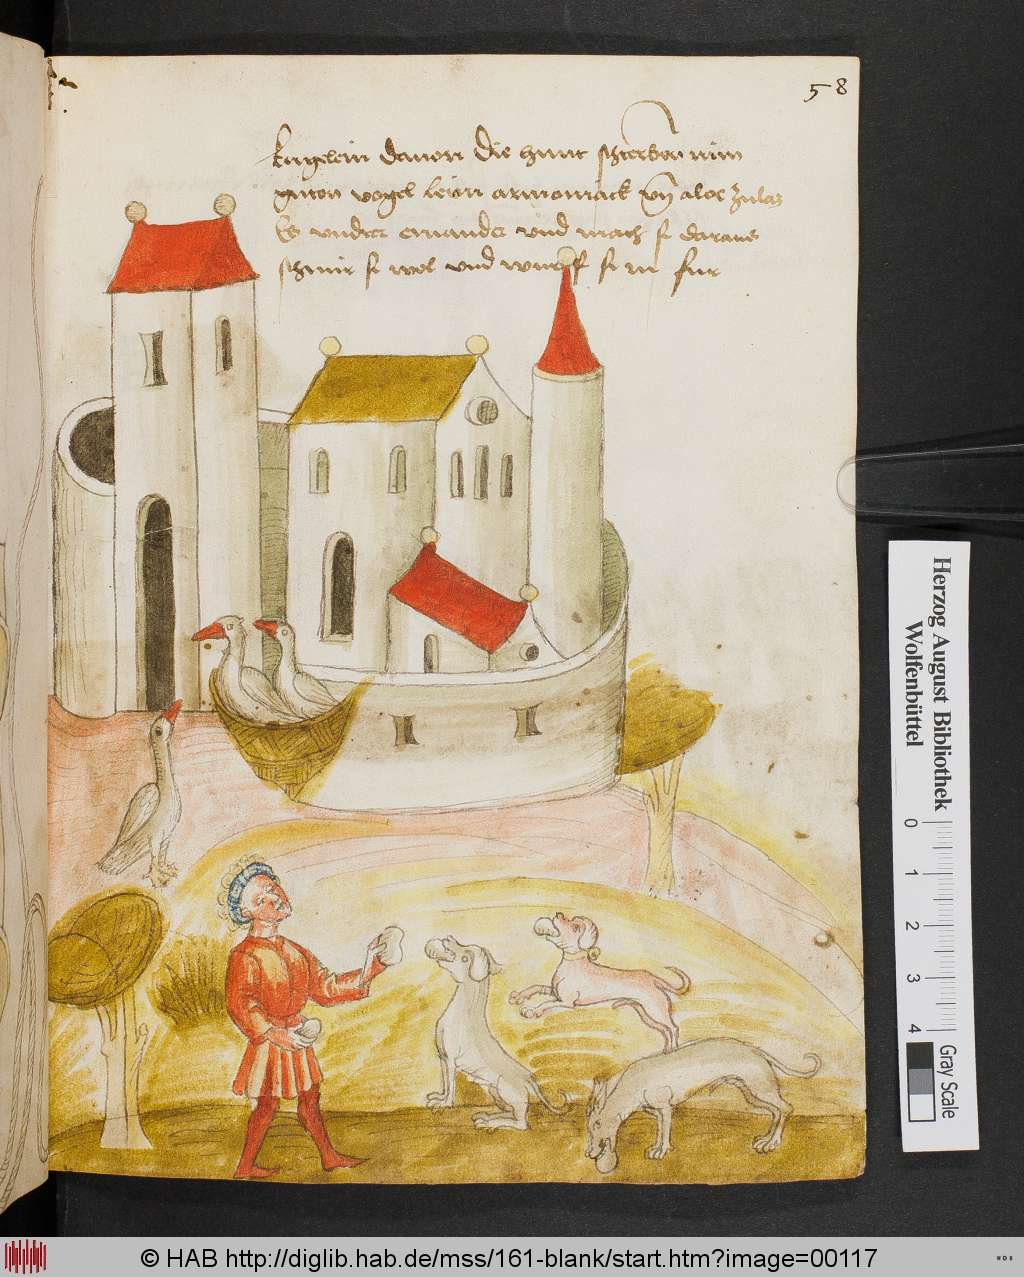 58
kugelein davon die hunt sterben nim
guten vogel leim armoniack vnd aloe zulas
es vnder einander vnd mach k daraus
schmir k wol vnd wurff k in fur
Herzog August Bibliothek
Wolfenbüttel
0 1 2 3 4
Gray Scale
© HAB http://diglib.hab.de/mss/161-blank/start.htm?image=00117